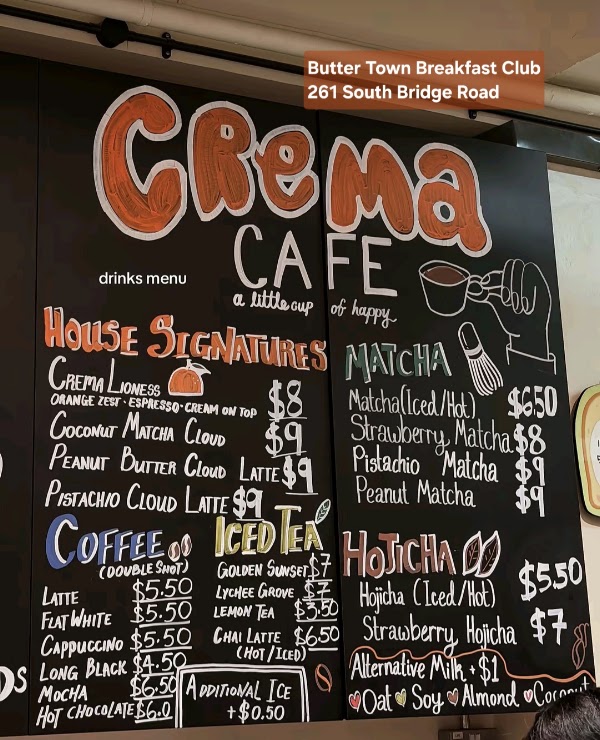 Butter Town Breakfast Club
261 South Bridge Road
CREMA
CAFE
drinks menu
a little cup of happy
HOUSE SIGNATURES
CREMA LIONESS $8
ORANGE ZEST · ESPRESSO · CREAM ON TOP
COCONUT MATCHA CLOUD $9
PEANUT BUTTER CLOUD LATTE $9
PISTACHIO CLOUD LATTE $9
COFFEE
(DOUBLE SHOT)
LATTE $5.50
FLAT WHITE $5.50
CAPPUCCINO $5.50
LONG BLACK $4.50
MOCHA $6.50
HOT CHOCOLATE $6.0
ICED TEA
GOLDEN SUNSET $7
LYCHEE GROVE $7
LEMON TEA $3.50
CHAI LATTE $6.50
(HOT/ICED)
ADDITIONAL ICE
+$0.50
MATCHA
Matcha (Iced/Hot) $6.50
Strawberry Matcha $8
Pistachio Matcha $9
Peanut Matcha $9
HOJICHA
Hojicha (Iced/Hot) $5.50
Strawberry Hojicha $7
Alternative Milk +$1
Oat Soy Almond Coconut
DS